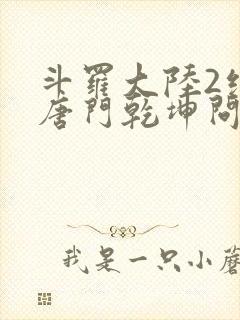 斗羅大陸2
唐門乾坤問
我是一只小蘑